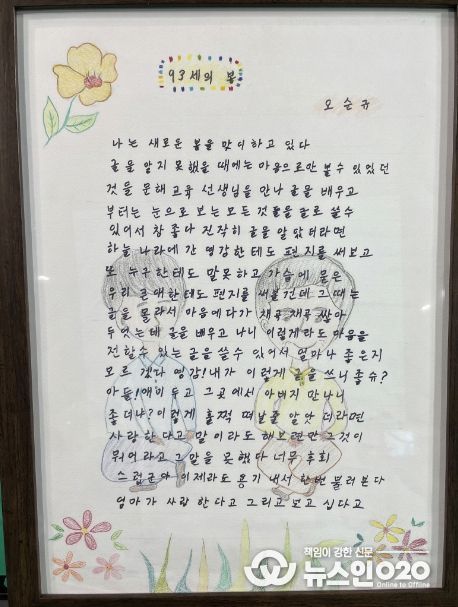 93세의 봄
오순규
나는 새로운 봄을 맞이하고 있다
글을 알지 못했을 때에는 마음으로만 볼수 있었던
것을 문해 교육 선생님을 만나 글을 배우고
부터는 눈으로 보는 모든 것들을 글로 쓸수
있어서 참 좋다 진작히 글을 알았더라면
하늘 나라에 간 영감한테도 편지를 써보고
또 누구한테도 말못하고 가슴에 묻은
우리 큰애한테도 편지를 써볼건데 그때는
글을 몰라서 마음에다가 채곡 채곡 쌓아
두었는데 글을 배우고 나니 이렇게라도 마음을
전할수 있는 글을 쓸수 있어서 얼마나 좋은지
모르 겠다 영감! 내가 이렇게 글을 쓰니 좋슈?
아들! 애미 두고 그곳에서 아버지 만나니
좋더냐? 이렇게 훌쩍 떠날줄 알앗더라면
사랑한다고 말이라도 해보련만 그것이
뭐어라고 그말을 못했다 너무 후회
스럽군아 이제라도 용기 내서 한번 불러본다
엄마가 사랑 한다고 그리고 보고 십다고
책임이 강한 신문
뉴스인020
Online to Offline